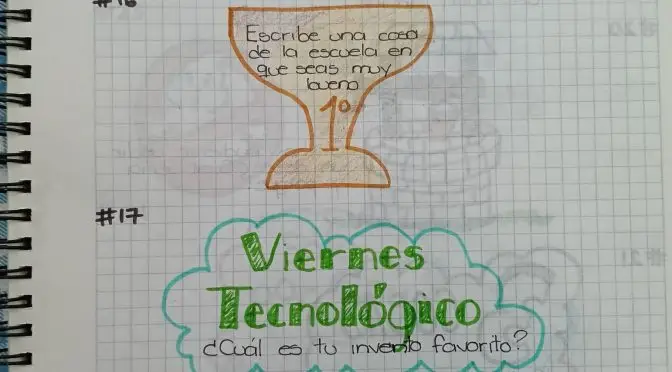 #16
Escribe una cosa
de la escuela en
que seas muy
bueno
1º
#17
Viernes
Tecnológico
¿Cuál es tu invento favorito?